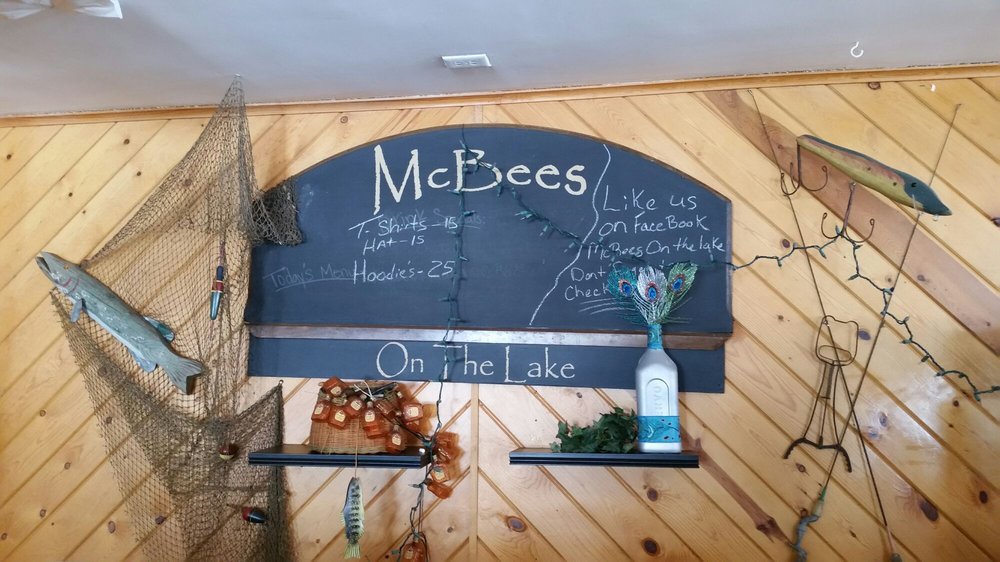 McBees
T-Shirts-15
Hat-15
Today's Menu
Hoodie's-25
Like us
on FaceBook
McBees On the lake
Dont
Check
On The Lake